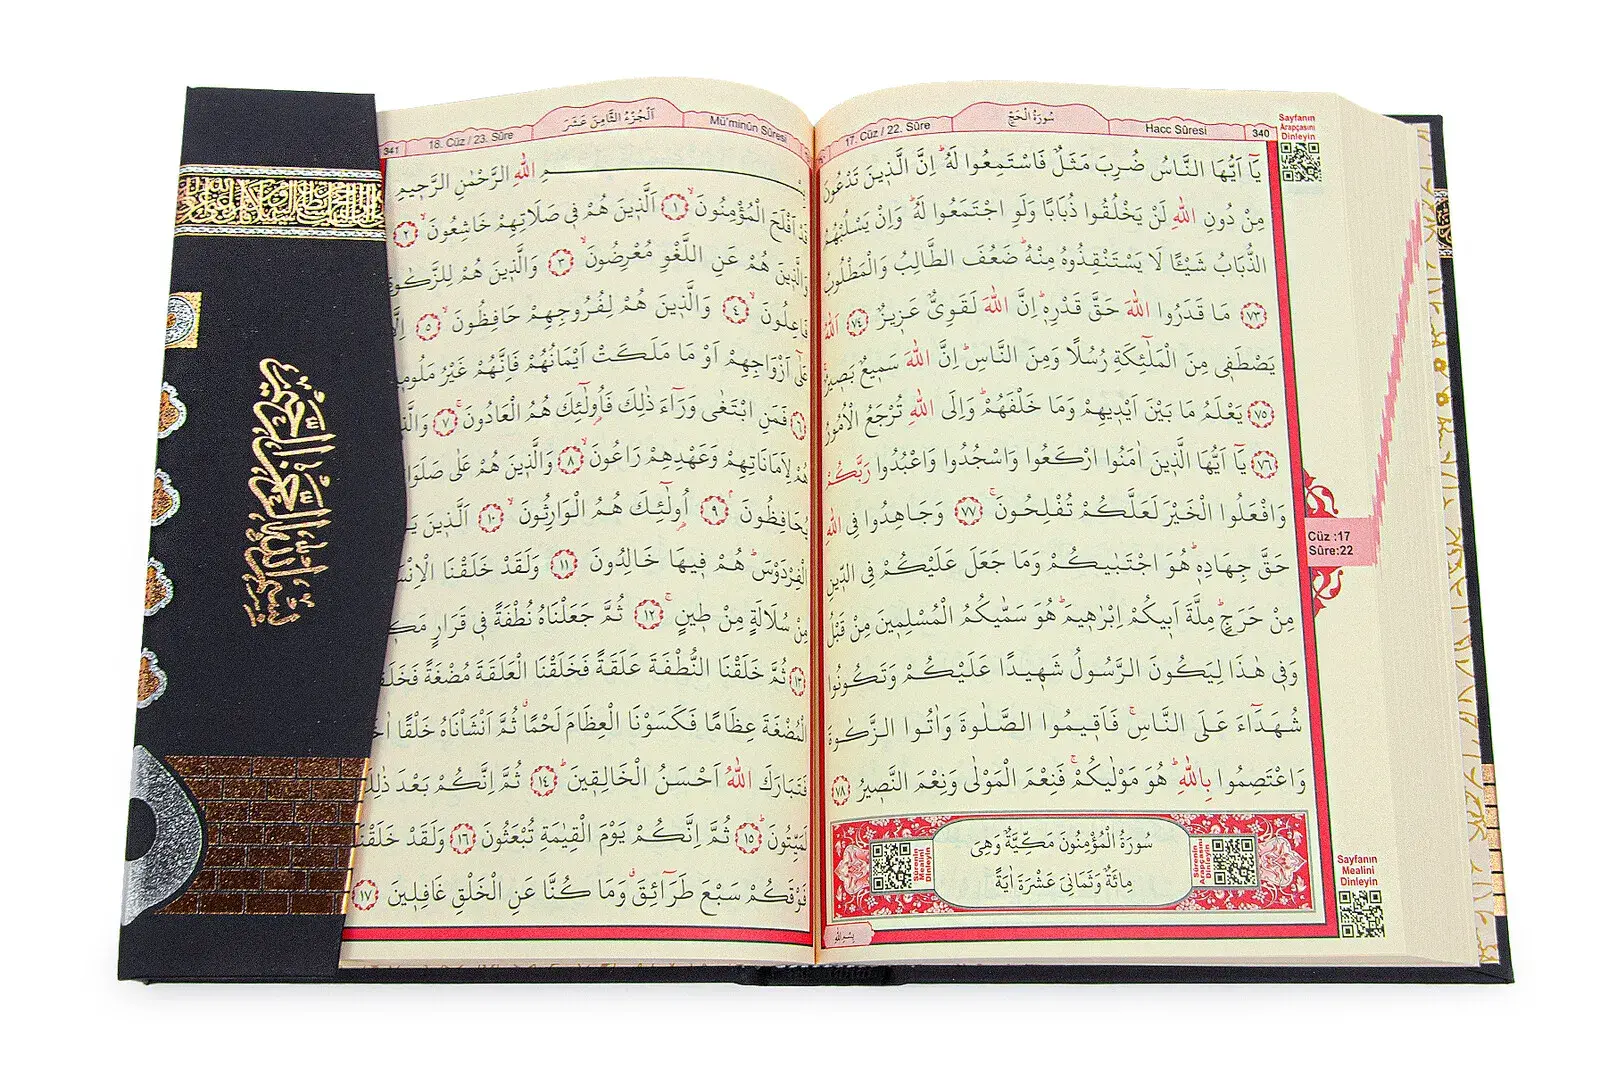 17. Cüz / 22. Sûre
سُورَةُ الْحَجِّ
Hacc Sûresi
340
Sayfanın
Arapçasını
Dinleyin
يَٓا اَيُّهَا النَّاسُ ضُرِبَ مَثَلٌ فَاسْتَمِعُوا لَهُ اِنَّ الَّذ۪ينَ تَدْعُونَ
مِنْ دُونِ اللّٰهِ لَنْ يَخْلُقُوا ذُبَابًا وَلَوِ اجْتَمَعُوا لَهُ وَاِنْ يَسْلُبْهُمُ
الذُّبَابُ شَيْـًٔا لَا يَسْتَنْقِذُوهُ مِنْهُ ضَعُفَ الطَّالِبُ وَالْمَطْلُوبُ
﴿٧٣﴾ مَا قَدَرُوا اللّٰهَ حَقَّ قَدْرِه۪ اِنَّ اللّٰهَ لَقَوِيٌّ عَز۪يزٌ ﴿٧٤﴾ اَللّٰهُ
يَصْطَف۪ي مِنَ الْمَلٰٓئِكَةِ رُسُلًا وَمِنَ النَّاسِ اِنَّ اللّٰهَ سَم۪يعٌ بَص۪يرٌ
﴿٧٥﴾ يَعْلَمُ مَا بَيْنَ اَيْد۪يهِمْ وَمَا خَلْفَهُمْ وَاِلَى اللّٰهِ تُرْجَعُ الْاُمُورُ
﴿٧٦﴾ يَٓا اَيُّهَا الَّذ۪ينَ اٰمَنُوا ارْكَعُوا وَاسْجُدُوا وَاعْبُدُوا رَبَّكُمْ
وَافْعَلُوا الْخَيْرَ لَعَلَّكُمْ تُفْلِحُونَ ﴿٧٧﴾ وَجَاهِدُوا فِي اللّٰهِ
حَقَّ جِهَادِه۪ هُوَ اجْتَبٰيكُمْ وَمَا جَعَلَ عَلَيْكُمْ فِي الدّ۪ينِ
مِنْ حَرَجٍ مِلَّةَ اَب۪يكُمْ اِبْرٰه۪يمَ هُوَ سَمّٰيكُمُ الْمُسْلِم۪ينَ مِنْ قَبْلُ
وَف۪ي هٰذَا لِيَكُونَ الرَّسُولُ شَه۪يدًا عَلَيْكُمْ وَتَكُونُوا
شُهَدَٓاءَ عَلَى النَّاسِ فَاَق۪يمُوا الصَّلٰوةَ وَاٰتُوا الزَّكٰوةَ
وَاعْتَصِمُوا بِاللّٰهِ هُوَ مَوْلٰيكُمْ فَنِعْمَ الْمَوْلٰى وَنِعْمَ النَّص۪يرُ ﴿٧٨﴾
Cüz :17
Sûre:22
سُورَةُ الْمُؤْمِنُونَ مَكِّيَّةٌ وَهِيَ
مِائَةٌ وَثَمَانِيَ عَشْرَةَ اٰيَةً
Sûrenin
Arapçasını
Dinleyin
Sûrenin
Mealini
Dinleyin
Sayfanın
Mealini
Dinleyin
341
18. Cüz / 23. Sûre
اَلْجُزْءُ الثَّامِنَ عَشَرَ
Mü'minûn Sûresi
بِسْمِ اللّٰهِ الرَّحْمٰنِ الرَّح۪يمِ
قَدْ اَفْلَحَ الْمُؤْمِنُونَ ﴿١﴾ اَلَّذ۪ينَ هُمْ ف۪ي صَلَاتِهِمْ خَاشِعُونَ ﴿٢﴾
وَالَّذ۪ينَ هُمْ عَنِ اللَّغْوِ مُعْرِضُونَ ﴿٣﴾ وَالَّذ۪ينَ هُمْ لِلزَّكٰوةِ
فَاعِلُونَ ﴿٤﴾ وَالَّذ۪ينَ هُمْ لِفُرُوجِهِمْ حَافِظُونَ ﴿٥﴾
عَلٰٓى اَزْوَاجِهِمْ اَوْ مَا مَلَكَتْ اَيْمَانُهُمْ فَاِنَّهُمْ غَيْرُ مَلُوم۪ينَ
﴿٦﴾ فَمَنِ ابْتَغٰى وَرَٓاءَ ذٰلِكَ فَاُو۬لٰٓئِكَ هُمُ الْعَادُونَ ﴿٧﴾
هُمْ لِاَمَانَاتِهِمْ وَعَهْدِهِمْ رَاعُونَ ﴿٨﴾ وَالَّذ۪ينَ هُمْ عَلٰى
يُحَافِظُونَ ﴿٩﴾ اُو۬لٰٓئِكَ هُمُ الْوَارِثُونَ ﴿١٠﴾ اَلَّذ۪ينَ
الْفِرْدَوْسَ هُمْ ف۪يهَا خَالِدُونَ ﴿١١﴾ وَلَقَدْ خَلَقْنَا
مِنْ سُلَالَةٍ مِنْ ط۪ينٍ ﴿١٢﴾ ثُمَّ جَعَلْنَاهُ نُطْفَةً ف۪ي قَرَارٍ
﴿١٣﴾ ثُمَّ خَلَقْنَا النُّطْفَةَ عَلَقَةً فَخَلَقْنَا الْعَلَقَةَ مُضْغَةً
الْمُضْغَةَ عِظَامًا فَكَسَوْنَا الْعِظَامَ لَحْمًا ثُمَّ اَنْشَأْنَاهُ خَلْقًا
فَتَبَارَكَ اللّٰهُ اَحْسَنُ الْخَالِق۪ينَ ﴿١٤﴾ ثُمَّ اِنَّكُمْ بَعْدَ ذٰلِكَ
لَمَيِّتُونَ ﴿١٥﴾ ثُمَّ اِنَّكُمْ يَوْمَ الْقِيٰمَةِ تُبْعَثُونَ ﴿١٦﴾ وَلَقَدْ خَلَقْنَا
فَوْقَكُمْ سَبْعَ طَرَٓائِقَ وَمَا كُنَّا عَنِ الْخَلْقِ غَافِل۪ينَ ﴿١٧﴾
بِسْمِ اللّٰهِ الرَّحْمٰنِ الرَّح۪يمِ